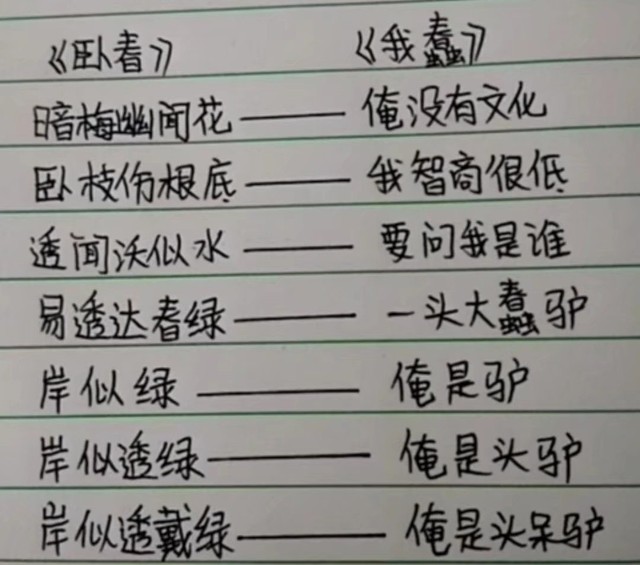 《卧春》 《我蠢》
暗梅幽闻花——俺没有文化
卧枝伤根底——我智商很低
透闻沃似水——要问我是谁
易透达春绿——一头大蠢驴
岸似绿——俺是驴
岸似透绿——俺是头驴
岸似透戴绿——俺是头呆驴